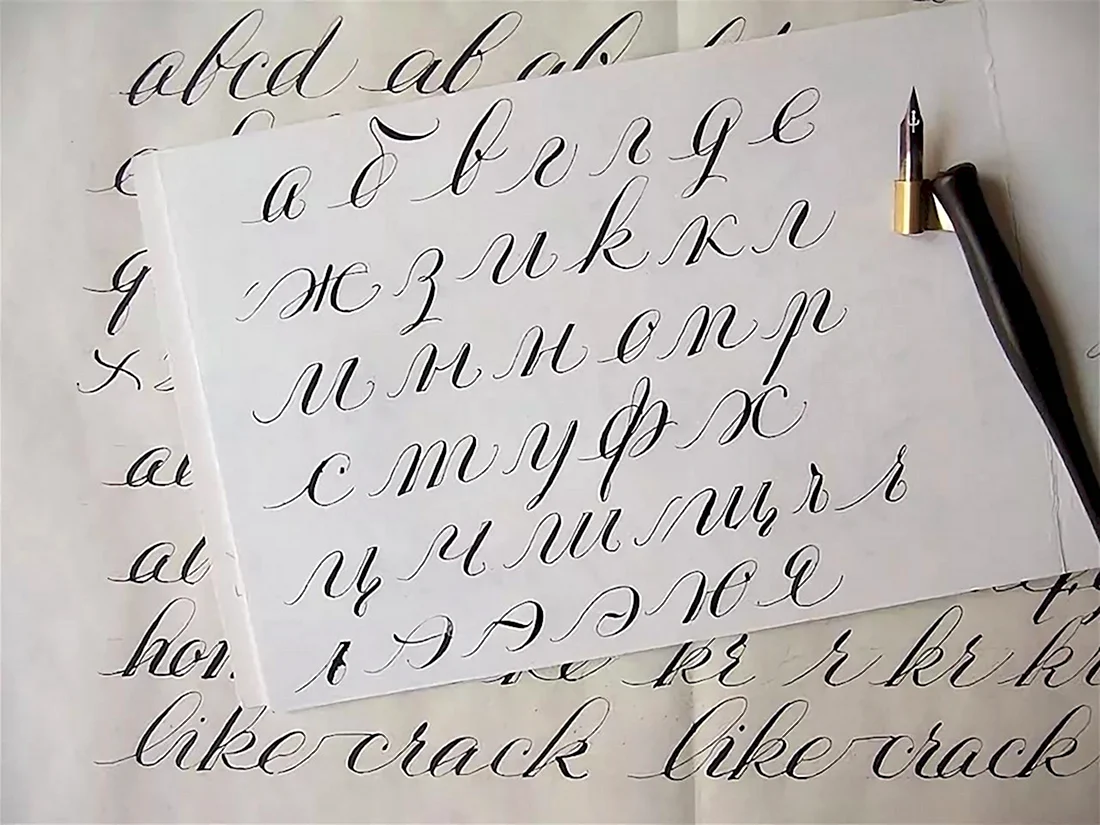 abcd ab ab
а б в г г д е
ж з и к к л
q
м н н о п р
x
с т у ф х
ц ч ш щ
ь э э э ю я
kr r kr kr
like crack like crack